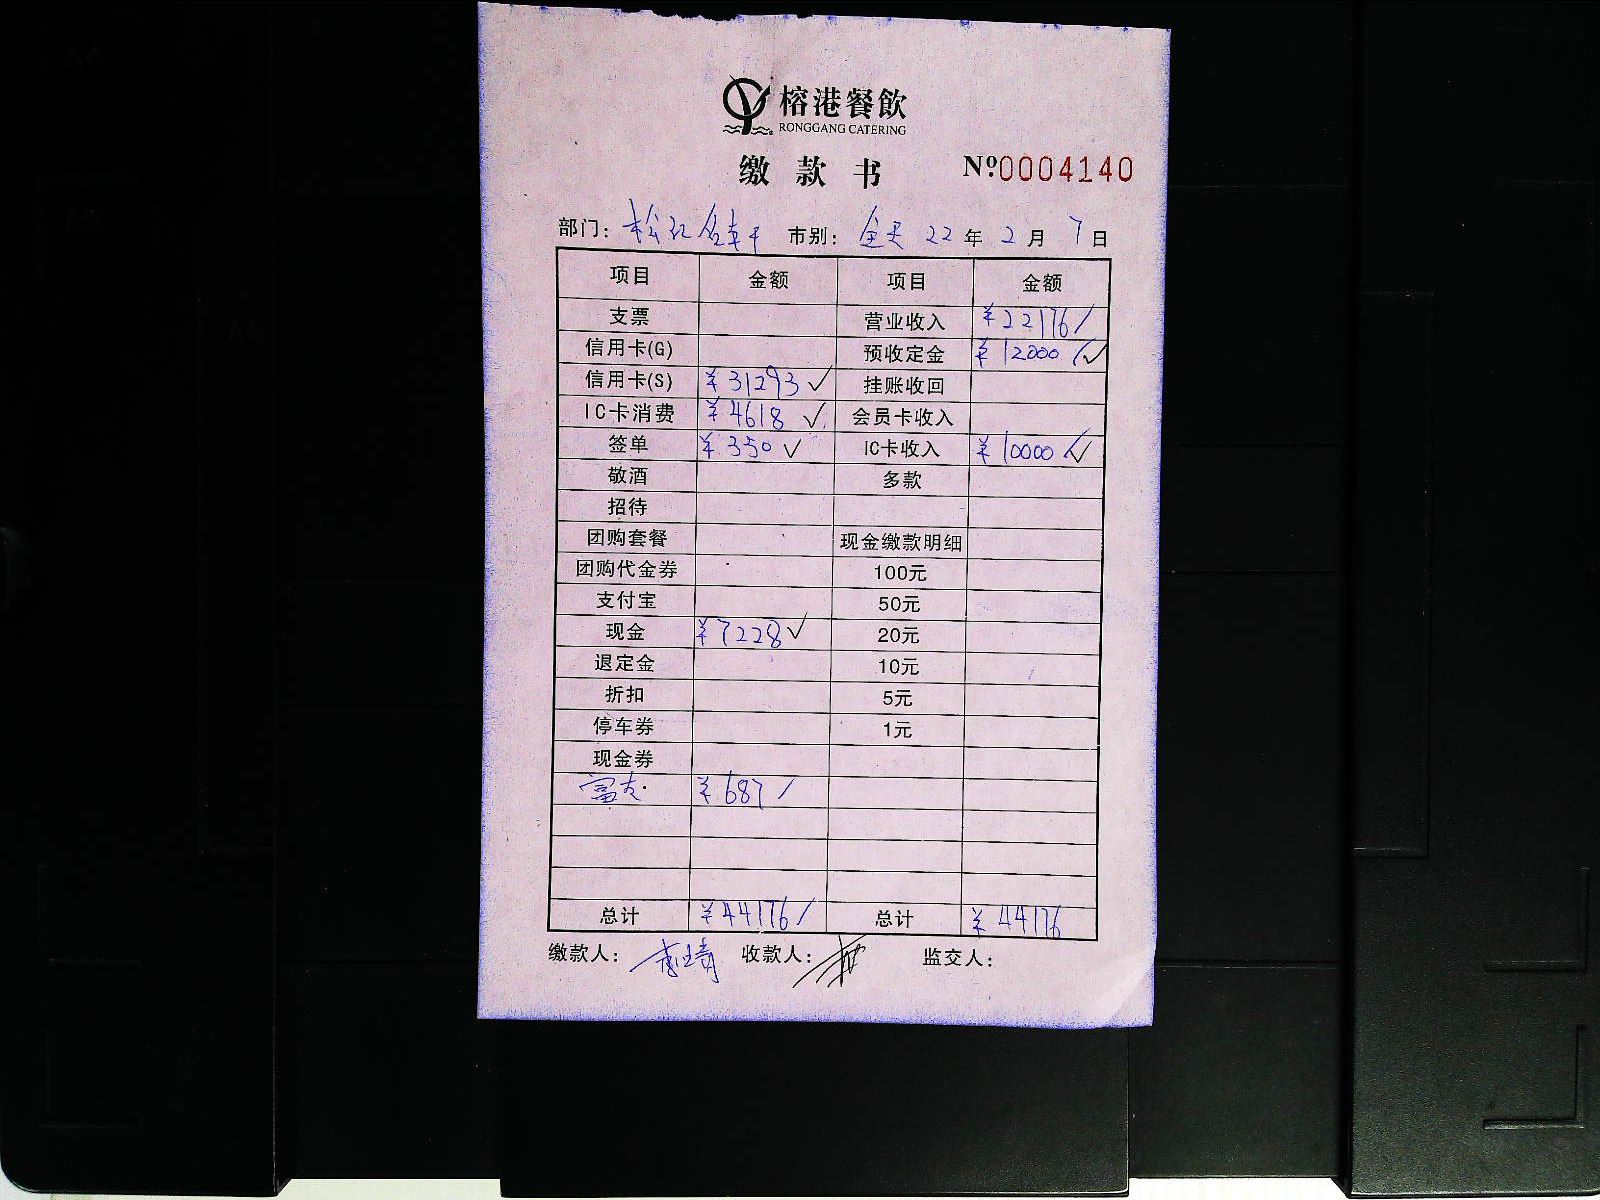 榕港餐飲
RONGGANG CATERING
缴款书 Nº0004140
部门: 松江 市别: 全天 22年2月7日
项目 金额 项目 金额
支票 营业收入 ¥22176
信用卡(G) 预收定金 ¥12000 ✓
信用卡(S) ¥31293 ✓ 挂账收回
IC卡消费 ¥4618 ✓ 会员卡收入
签单 ¥350 ✓ IC卡收入 ¥10000 ✓
敬酒 多款
招待
团购套餐 现金缴款明细
团购代金券 100元
支付宝 50元
现金 ¥7228 ✓ 20元
退定金 10元
折扣 5元
停车券 1元
现金券
¥687
总计 ¥44176 总计 ¥44176
缴款人: 收款人: 监交人: